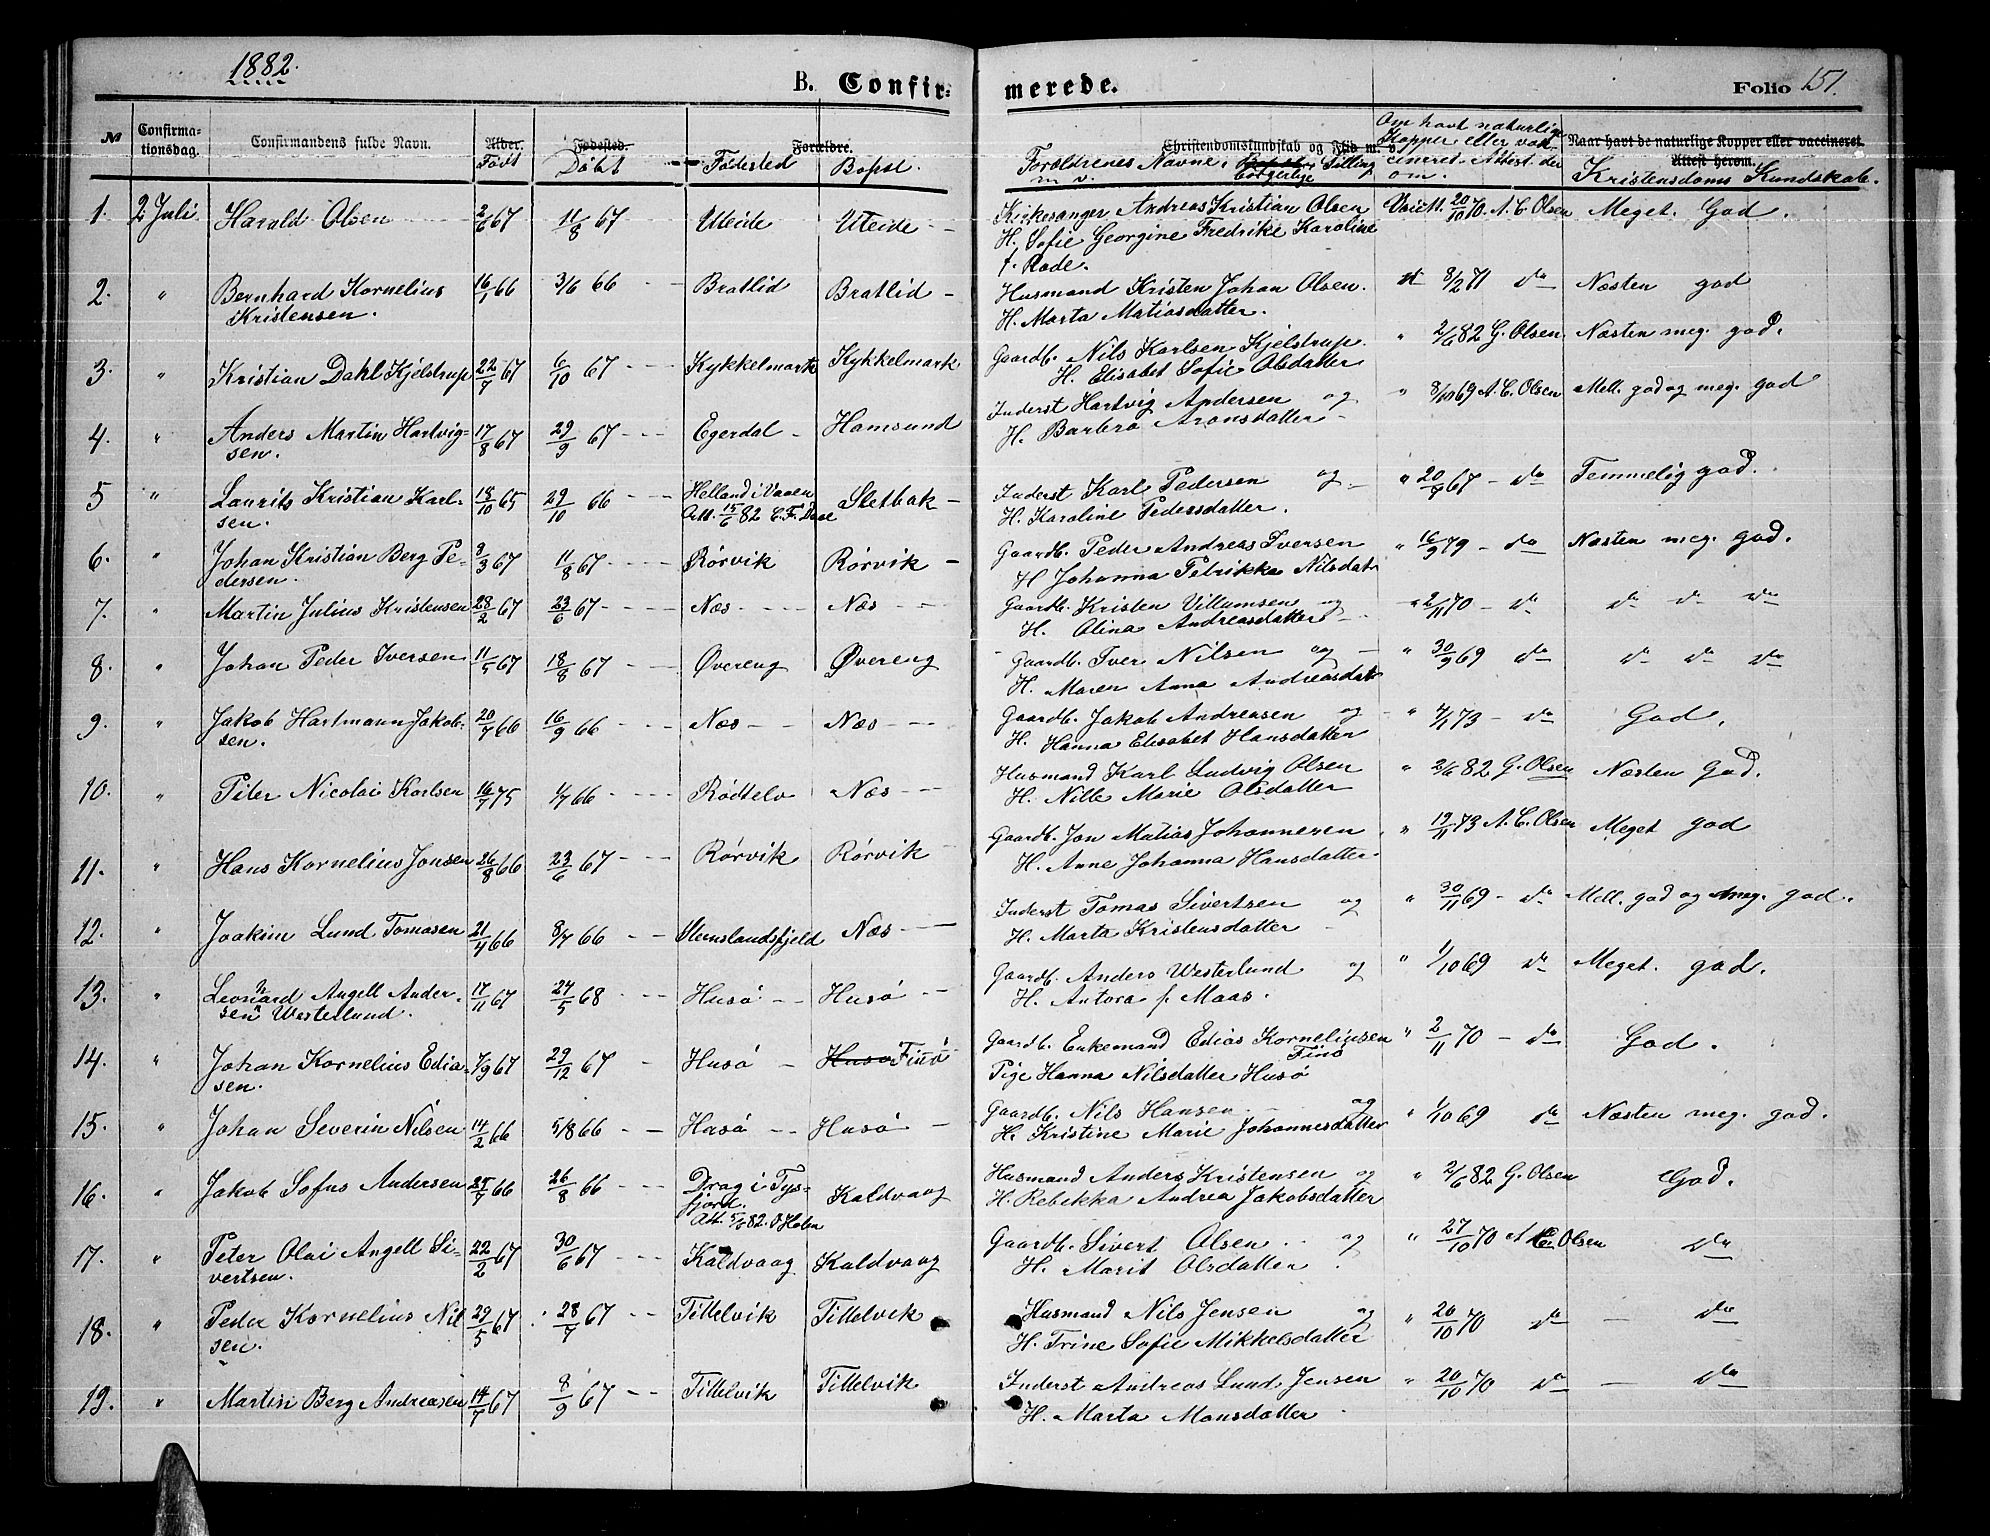 1882.
B. Confir=
merede.
Folio 151.
№ Confirma=tionsdag. Confirmandens fulde Navn. Alder. Fødested. Forældre.
Født Døbt Fødested Bopæl.
Christendomskundskab og Flid m. v. Naar havt de naturlige Kopper eller vaccineret. Attest herom.
Forældrenes Navne, Bopæl, borgerlige Stilling m v. Om havt naturlige Kopper eller vaccineret. Attest derom. Kristendoms Kundskab.
1. 2 Juli Harald Olsen 2/6 67 11/8 67 Uteide Uteide Kirkesanger Andreas Kristian Olsen Vacc. 20/10 70 A. C. Olsen Meget God.
H. Sofie Georgine Fredrike Karoline
f. Rode.
2. " Bernhard Kornelius 16/1 66 3/6 66 Bratlid Bratlid Husmand Kristen Johan Olsen. 8/2 71 do Næsten god
Kristensen. H. Marta Matiasdatter.
3. " Kristian Dahl Kjelstrup 22/7 67 6/10 67 Kykkelmark Kykkelmark Gaardb. Nils Karlsen Kjelstrup. " 2/6 82 G. Olsen Næsten meg. god.
H. Elisabet Sofie Olsdatter
4. " Anders Martin Hartvig- 17/8 67 29/9 67 Egerdal Hamsund Inderst Hartvig Andersen og " 8/10 69 A. C. Olsen Mell. god og meg. god
sen. H. Barbro Aronsdatter
5 " Laurits Kristian Karl- 18/10 65 29/10 66 Helland i Vaagen Sletbak Inderst Karl Pedersen og " 20/7 67 do Temmelig god.
sen. Att. 15/6 82 C. F. Daae H. Karoline Pedersdatter.
6. " Johan Kristian Berg Pe- 3/3 67 11/8 67 Rørvik Rørvik Gaardb. Peder Andreas Iversen " 16/9 79 do Næsten meg. god.
dersen. H Johanna Petrikke Nilsdatr
7. " Martin Julius Kristensen 28/2 67 23/6 67 Næs Næs Gaardb. Kristen Villumsen og " 2/11 70 do do do do
H. Olina Andreasdatter
8. " Johan Peder Iversen 11/5 67 18/8 67 Øvereng Øvereng Gaardb. Iver Nilsen og " 30/9 69 do do do do
H. Maren Anna Andreasdatr
9. " Jakob Hartmann Jakob- 20/7 66 16/9 66 Næs Næs Gaardb. Jakob Andreasen og " 4/1 73 do God.
sen. H. Hanna Elisabet Hansdatter
10. " Peter Nicolai Karlsen 16/7 75 1/7 66 Rødtelv Næs Husmand Karl Ludvig Olsen " 2/6 82 G. Olsen Næsten God.
H. Nille Marie Olsdatter
11. " Hans Kornelius Jonsen 26/8 66 23/6 67 Rørvik Rørvik Gaardb. Jon Matias Johannesen " 19/11 73 A. C. Olsen Meget god
H. Anne Johanna Hansdatter.
12. " Joakim Lund Tomasen 21/4 66 8/7 66 Stenslandsfjeld Næs Inderst Tomas Sivertsen og " 30/11 69 do Mell. god og meg. god.
H. Marta Kristensdatter
13. " Leonhard Angell Ander- 17/11 67 24/5 68 Husø Husø Gaardb. Anders Westerlund og " 1/10 69 do Meget. god.
sen Westerlund. H. Antora f. Maas.
14. " Johan Kornelius Edia- 1/9 67 29/12 67 Husø Husø Finø Gaardb. Enkemand Edias Korneliusen " 2/11 70 do God.
sen. Finø
Pige Hanna Nilsdatter Husø
15. " Johan Severin Nilsen 14/2 66 5/8 66 Husø Husø Gaardb. Nils Hansen og " 1/10 69 do Næsten meg. god.
H. Kristine Marie Johannesdatter
16. " Jakob Sofus Andersen 25/7 66 26/8 66 Drag i Tys- Kaldvaag Husmand Anders Kristensen og " 2/6 82 G. Olsen God.
fjord. H. Rebekka Andrea Jakobsdatter
Att. 5/6 82. O Holm
17. " Peter Olai Angell Si- 22/2 67 30/6 67 Kaldvaag Kaldvaag Gaardb. Sivert Olsen og " 27/10 70 A C. Olsen do
vertsen. H. Marit Olsdatter.
18. " Peder Kornelius Nil 29/5 67 28/7 67 Tittelvik Tittelvik Husmand Nils Jensen og " 20/10 70 do do
sen. H. Trine Sofie Mikkelsdatter
19. " Martin Berg Andreasen 14/7 67 8/9 67 Tittelvik Tittelvik Inderst Andreas Lund Jensen " 20/10 70 do do
H. Marta Monsdatter